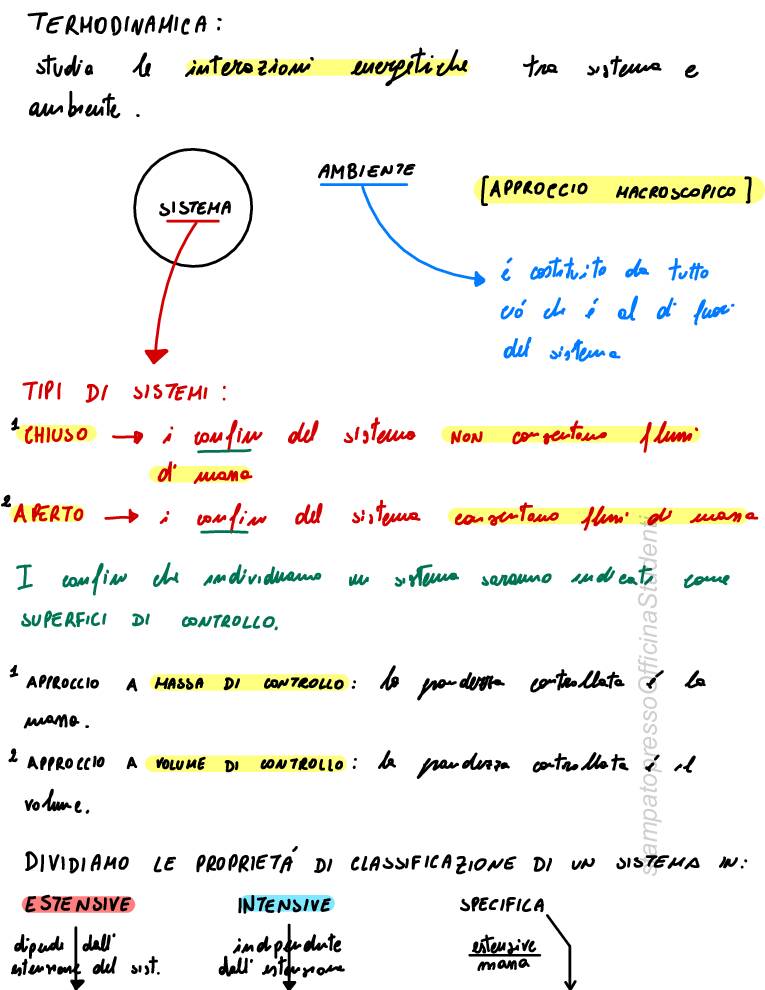 TERMODINAMICA:
studia le interazioni energetiche tra sistema e
ambiente.
SISTEMA
AMBIENTE
[APPROCCIO MACROSCOPICO]
é costituito da tutto
ció che é al di fuori
del sistema
TIPI DI SISTEMI:
1 CHIUSO → i confini del sistema NON consentono flussi
di massa
2 APERTO → i confini del sistema consentono flussi di massa
I confini che individuano un sistema saranno indicati come
SUPERFICI DI CONTROLLO.
1 APPROCCIO A MASSA DI CONTROLLO: la grandezza controllata é la
massa.
2 APPROCCIO A VOLUME DI CONTROLLO: la grandezza controllata é il
volume.
DIVIDIAMO LE PROPRIETÁ DI CLASSIFICAZIONE DI UN SISTEMA IN:
ESTENSIVE
dipende dall'
estensione del sist.
INTENSIVE
indipendente
dall'estensione
SPECIFICA
estensive
massa
stampatopressoOfficinaStudenti